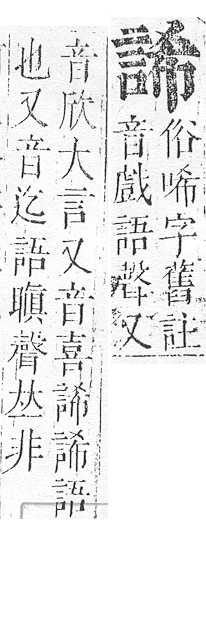 諦
俗唏字舊註
音戲語聲又
音欣大言又音喜諦諦語
也又音迄語瞋聲𠀤非